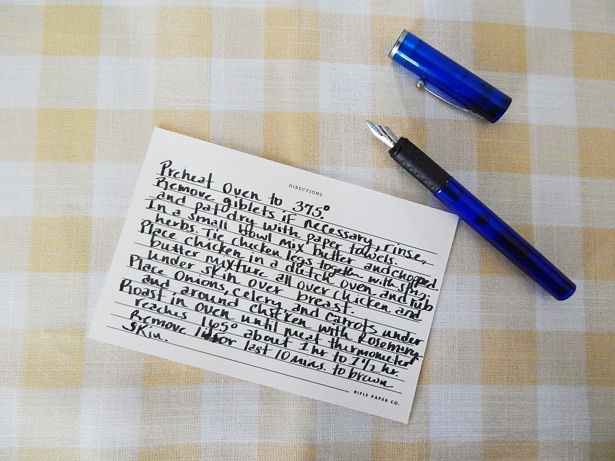 DIRECTIONS
Preheat Oven to 375°
Remove giblets if necessary, rinse,
and pat dry with paper towels.
In a small bowl mix butter and chopped
herbs. Tie chicken legs together with string.
Place chicken in a dutch oven and rub
butter mixture all over chicken and
under skin over breast.
Place Onions, Celery and Carrots under
and around chicken with Rosemary
Roast in oven until meat thermometer
reaches 165° about 1 hr to 1 1/2 hr.
Remove last 10 mins. to brown
skin.
RIFLE PAPER CO.